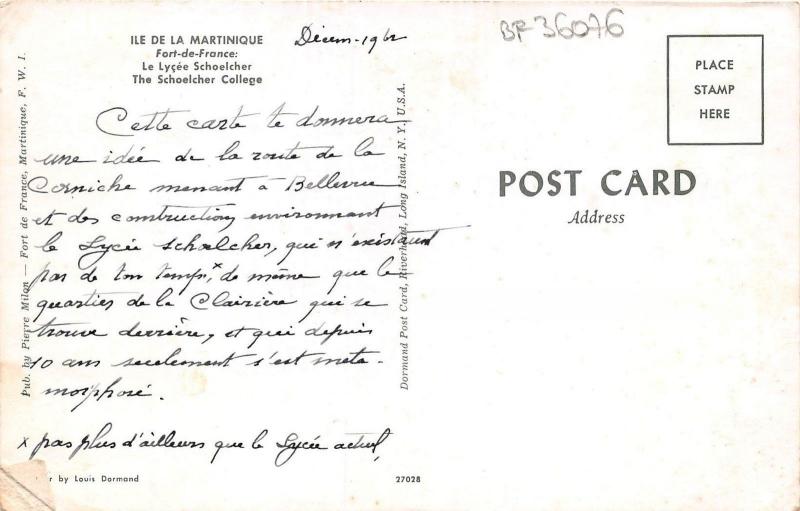 BF 36076
ILE DE LA MARTINIQUE
Fort-de-France:
Le Lyçée Schoelcher
The Schoelcher College
Décem-1962
Cette carte te donnera
une idée de la route de la
Corniche menant à Bellevue
et des constructions environnant
le Lycée Schoelcher, qui n'existaient
pas de ton temps,x de même que le
quartier de la Clairière qui se
trouve derrière, et qui depuis
10 ans seulement s'est méta-
morphosé.
x pas plus d'ailleurs que le Lycée actuel,
r by Louis Dormand
27028
Pub. by Pierre Milon — Fort de France, Martinique, F. W. I.
Dormand Post Card, Riverhead, Long Island, N. Y., U.S.A.
PLACE
STAMP
HERE
POST CARD
Address